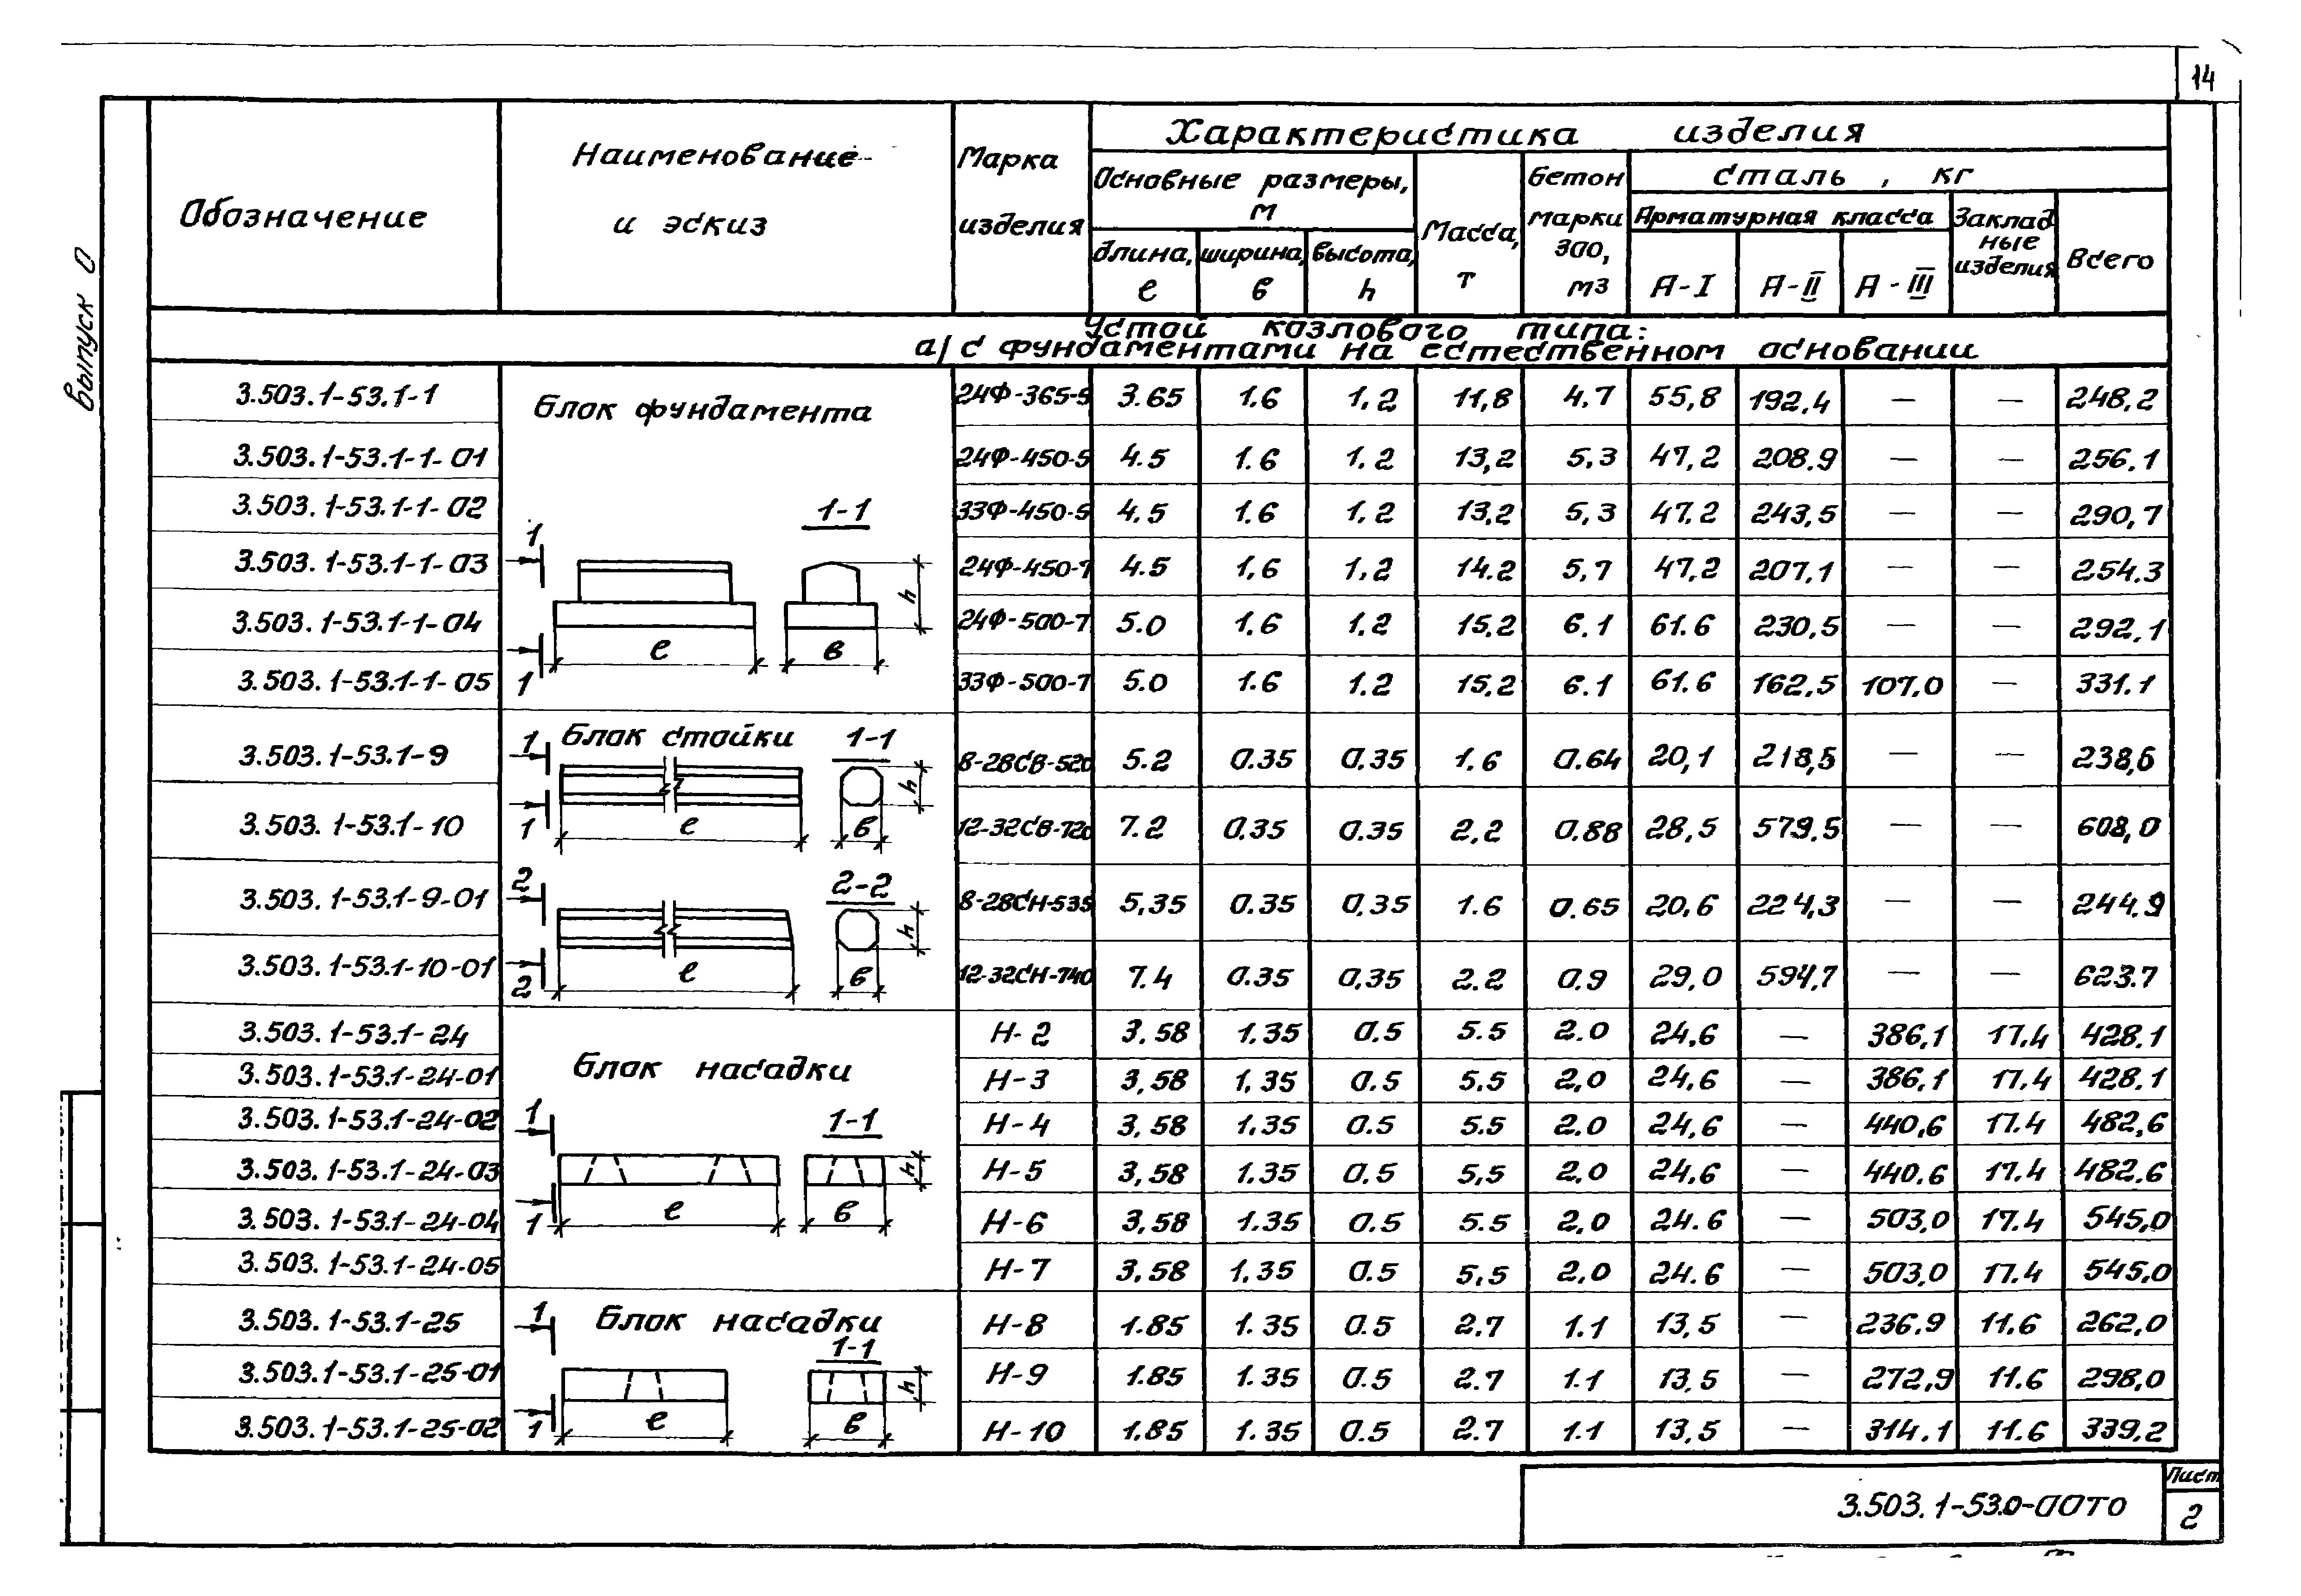 14
Выпуск 0
Обозначение
Наименование и эскиз
Марка изделия
Характеристика изделия
Основные размеры, м
длина, l
ширина, в
высота, h
Масса, т
Бетон марки 300, м3
Сталь, кг
Арматурная класса
А-I
А-II
А-III
Закладные изделия
Всего
Устой козлового типа:
а/ с фундаментами на естественном основании
3.503.1-53.1-1 24Ф-365-5 3.65 1.6 1,2 11,8 4,7 55,8 192,4 — — 248,2
3.503.1-53.1-1-01 24Ф-450-5 4.5 1.6 1,2 13,2 5,3 47,2 208.9 — — 256.1
3.503.1-53.1-1-02 33Ф-450-5 4,5 1.6 1,2 13,2 5,3 47,2 243,5 — — 290,7
3.503.1-53.1-1-03 24Ф-450-7 4.5 1,6 1,2 14.2 5,7 47,2 207,1 — — 254.3
3.503.1-53.1-1-04 24Ф-500-7 5.0 1.6 1.2 15,2 6.1 61.6 230,5 — — 292,1
3.503.1-53.1-1-05 33Ф-500-7 5.0 1.6 1.2 15,2 6.1 61.6 162,5 107,0 — 331.1
3.503.1-53.1-9 8-28СВ-520 5.2 0.35 0,35 1.6 0.64 20,1 218,5 — — 238,6
3.503.1-53.1-10 12-32СВ-720 7.2 0.35 0.35 2,2 0.88 28,5 579.5 — — 608,0
3.503.1-53.1-9-01 8-28СН-535 5,35 0.35 0,35 1.6 0.65 20,6 224,3 — — 244.9
3.503.1-53.1-10-01 12-32СН-740 7.4 0.35 0,35 2.2 0.9 29,0 594,7 — — 623.7
3.503.1-53.1-24 Н-2 3,58 1.35 0.5 5.5 2.0 24,6 — 386,1 17.4 428.1
3.503.1-53.1-24-01 Н-3 3,58 1,35 0.5 5.5 2,0 24,6 — 386,1 17.4 428.1
3.503.1-53.1-24-02 Н-4 3,58 1,35 0.5 5.5 2.0 24,6 — 440,6 17.4 482,6
3.503.1-53.1-24-03 Н-5 3,58 1.35 0.5 5,5 2.0 24,6 — 440.6 17.4 482.6
3.503.1-53.1-24-04 Н-6 3,58 1.35 0.5 5.5 2,0 24.6 — 503,0 17.4 545,0
3.503.1-53.1-24-05 Н-7 3,58 1,35 0.5 5,5 2,0 24.6 — 503,0 17.4 545,0
3.503.1-53.1-25 Н-8 1.85 1.35 0.5 2.7 1.1 13,5 — 236.9 11.6 262,0
3.503.1-53.1-25-01 Н-9 1.85 1.35 0.5 2.7 1.1 13,5 — 272,9 11.6 298,0
3.503.1-53.1-25-02 Н-10 1.85 1.35 0.5 2.7 1.1 13,5 — 314.1 11.6 339.2
Блок фундамента
1-1
1
1
l
в
h
Блок стойки
1-1
1
1
l
в
h
2-2
2
2
l
в
h
Блок насадки
1-1
1
1
l
в
h
Блок насадки
1-1
1
1
l
в
h
3.503.1-53.0-00ТО
Лист
2